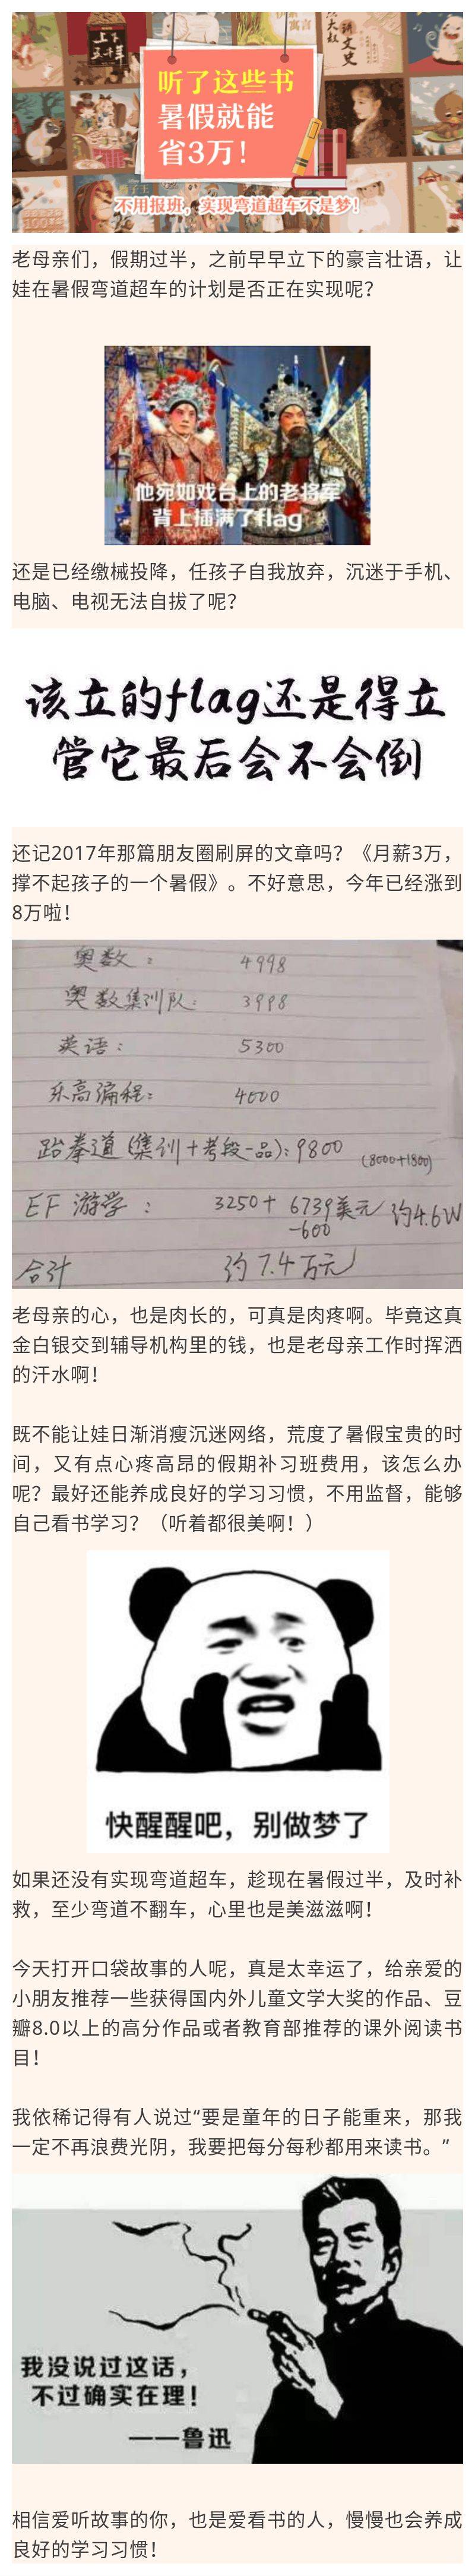 听了这些书
暑假就能
省3万！
不用报班，实现弯道超车不是梦！
老母亲们，假期过半，之前早早立下的豪言壮语，让
娃在暑假弯道超车的计划是否正在实现呢？
他宛如戏台上的老将军
背上插满了flag
还是已经缴械投降，任孩子自我放弃，沉迷于手机、
电脑、电视无法自拔了呢？
该立的flag还是得立
管它最后会不会倒
还记2017年那篇朋友圈刷屏的文章吗？《月薪3万，
撑不起孩子的一个暑假》。不好意思，今年已经涨到
8万啦！
奥数： 4998
奥数集训队： 3998
英语： 5300
乐高编程： 4000
跆拳道（集训+考段一品）：9800 (8000+1800)
EF 游学： 3250+ 6739美元 约4.6W
-600
合计 约7.4万元
老母亲的心，也是肉长的，可真是肉疼啊。毕竟这真
金白银交到辅导机构里的钱，也是老母亲工作时挥洒
的汗水啊！
既不能让娃日渐消瘦沉迷网络，荒度了暑假宝贵的时
间，又有点心疼高昂的假期补习班费用，该怎么办
呢？最好还能养成良好的学习习惯，不用监督，能够
自己看书学习？（听着都很美啊！）
快醒醒吧，别做梦了
如果还没有实现弯道超车，趁现在暑假过半，及时补
救，至少弯道不翻车，心里也是美滋滋啊！
今天打开口袋故事的人呢，真是太幸运了，给亲爱的
小朋友推荐一些获得国内外儿童文学大奖的作品、豆
瓣8.0以上的高分作品或者教育部推荐的课外阅读书
目！
我依稀记得有人说过“要是童年的日子能重来，那我
一定不再浪费光阴，我要把每分每秒都用来读书。”
我没说过这话，
不过确实在理！
——鲁迅
相信爱听故事的你，也是爱看书的人，慢慢也会养成
良好的学习习惯！